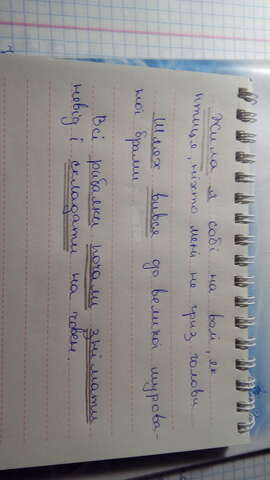 Жила я собі на волі, як
птиця, ніхто мені не гриз голови
Шлях вився до великої мурова-
ної брами
Всі рибалки почали знімати
невід і складати на човен.